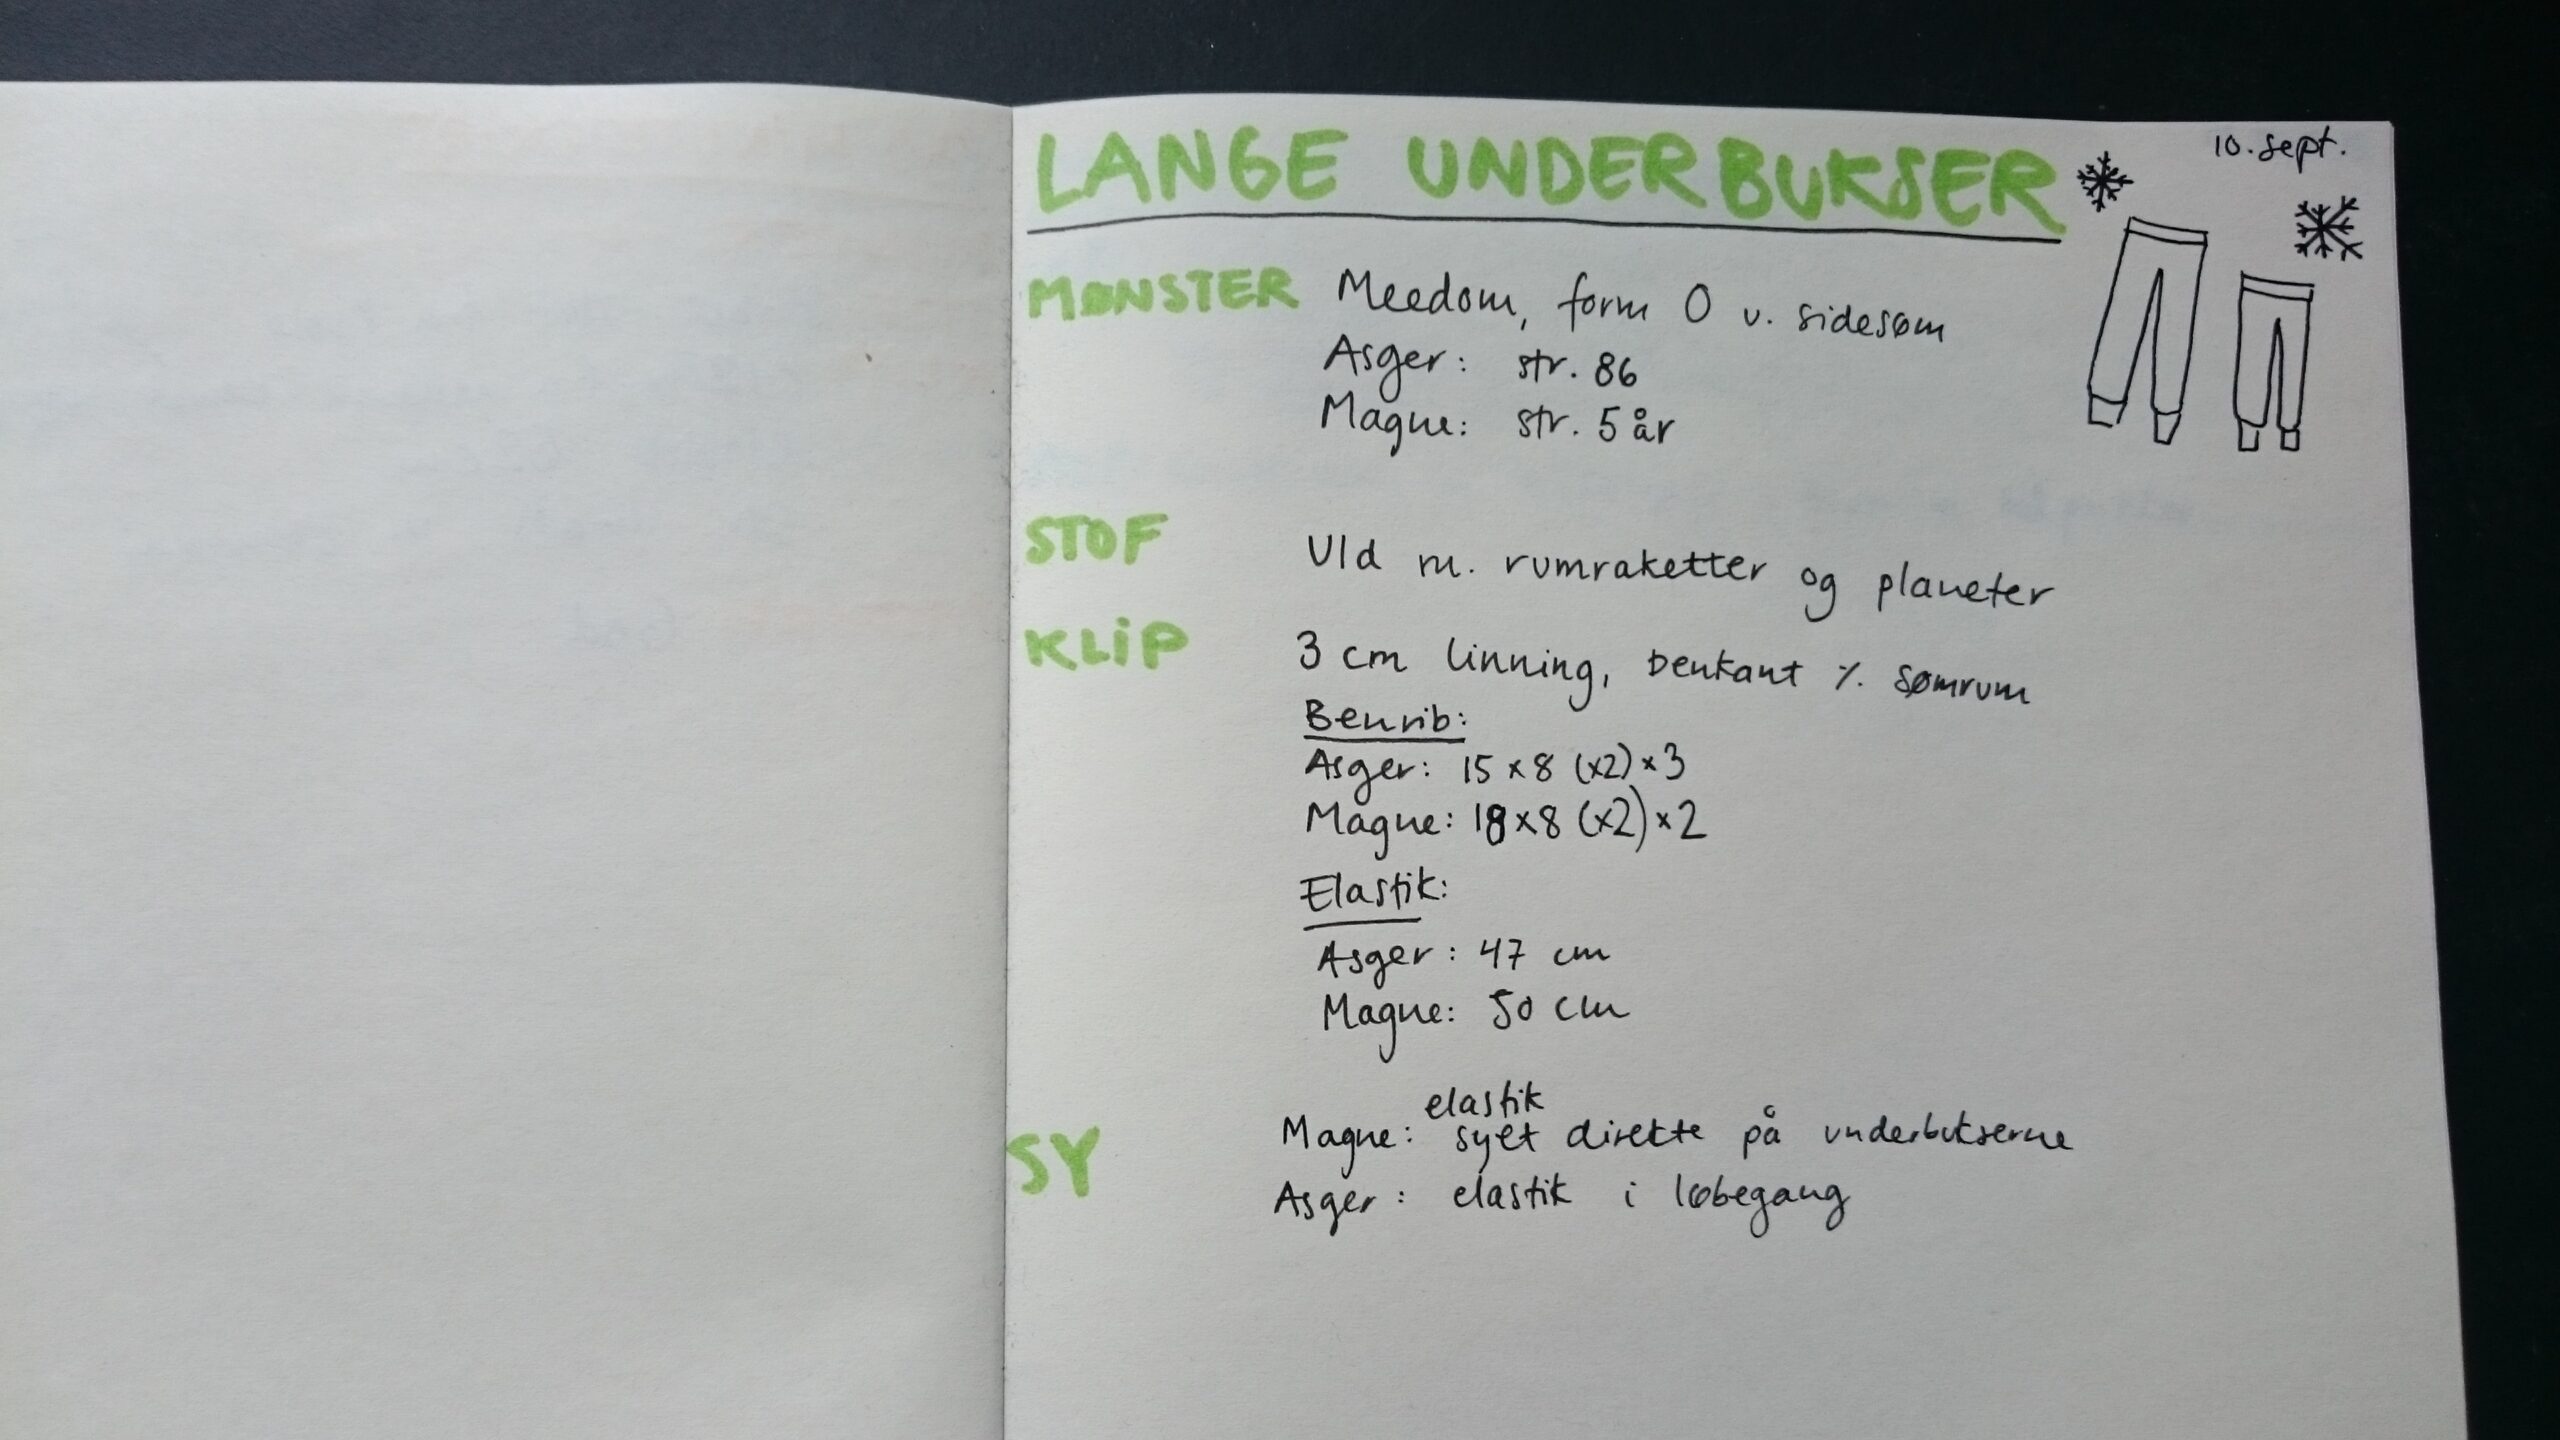 10. sept.
LANGE UNDERBUKSER
MØNSTER Meedom, form O v. sidesøm
Asger: str. 86
Magne: str. 5 år
STOF Uld m. rumraketter og planeter
KLiP 3 cm linning, benkant ٪ sømrum
Benrib:
Asger: 15 x 8 (x2) x 3
Magne: 18 x 8 (x2) x 2
Elastik:
Asger: 47 cm
Magne: 50 cm
elastik
SY Magne: syet direkte på underbukserne
Asger: elastik i løbegang